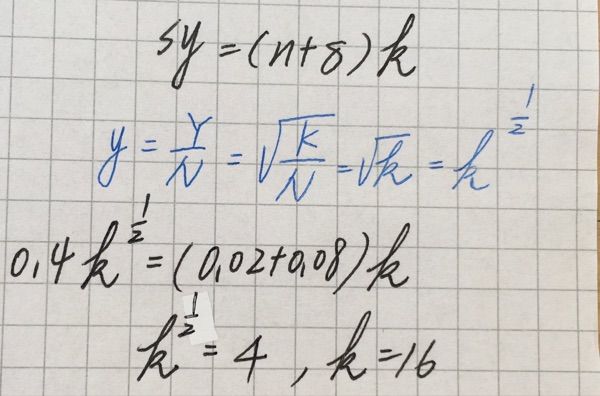 sy = (n+8)k
y = Y/N = √(K/N) = √k = k^(1/2)
0,4k^(1/2) = (0,02+0,08)k
k^(1/2) = 4 , k=16